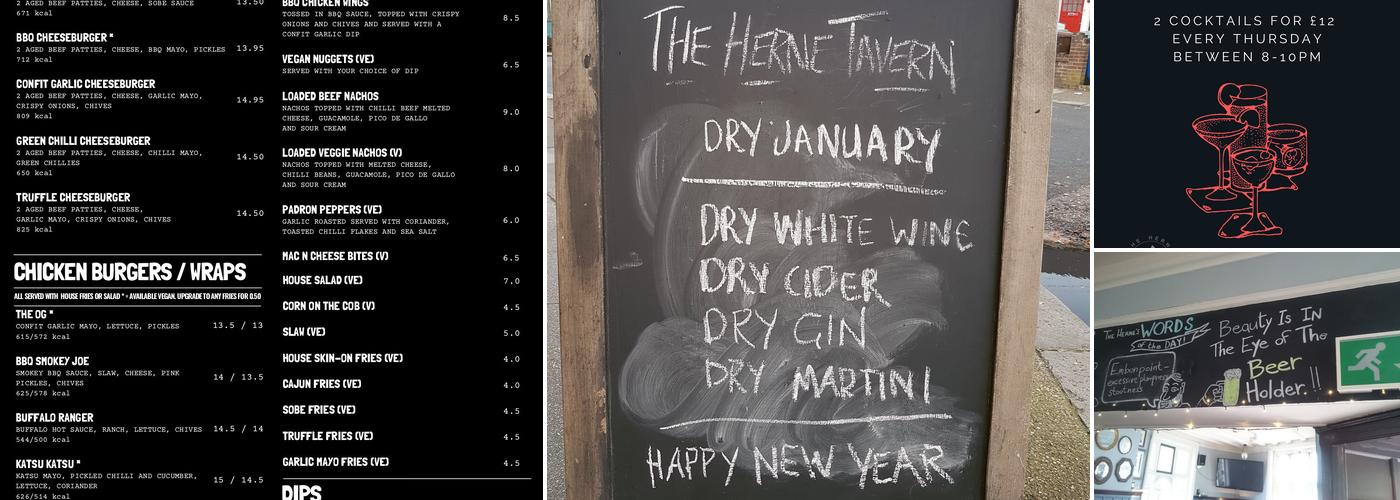 2 AGED BEEF PATTIES, CHEESE, SOBE SAUCE 13.50
671 kcal
BBQ CHEESEBURGER * 13.95
2 AGED BEEF PATTIES, CHEESE, BBQ MAYO, PICKLES
712 kcal
CONFIT GARLIC CHEESEBURGER
2 AGED BEEF PATTIES, CHEESE, GARLIC MAYO, 14.95
CRISPY ONIONS, CHIVES
809 kcal
GREEN CHILLI CHEESEBURGER
2 AGED BEEF PATTIES, CHEESE, CHILLI MAYO, 14.50
GREEN CHILLIES
650 kcal
TRUFFLE CHEESEBURGER
2 AGED BEEF PATTIES, CHEESE, 14.50
GARLIC MAYO, CRISPY ONIONS, CHIVES
825 kcal
CHICKEN BURGERS / WRAPS
ALL SERVED WITH HOUSE FRIES OR SALAD * = AVAILABLE VEGAN. UPGRADE TO ANY FRIES FOR 0.50
THE OG *
CONFIT GARLIC MAYO, LETTUCE, PICKLES 13.5 / 13
615/572 kcal
BBQ SMOKEY JOE
SMOKEY BBQ SAUCE, SLAW, CHEESE, PINK 14 / 13.5
PICKLES, CHIVES
625/578 kcal
BUFFALO RANGER
BUFFALO HOT SAUCE, RANCH, LETTUCE, CHIVES 14.5 / 14
544/500 kcal
KATSU KATSU *
KATSU MAYO, PICKLED CHILLI AND CUCUMBER, 15 / 14.5
LETTUCE, CORIANDER
626/514 kcal
BBQ CHICKEN WINGS
TOSSED IN BBQ SAUCE, TOPPED WITH CRISPY 8.5
ONIONS AND CHIVES AND SERVED WITH A
CONFIT GARLIC DIP
VEGAN NUGGETS (VE) 6.5
SERVED WITH YOUR CHOICE OF DIP
LOADED BEEF NACHOS
NACHOS TOPPED WITH CHILLI BEEF MELTED 9.0
CHEESE, GUACAMOLE, PICO DE GALLO
AND SOUR CREAM
LOADED VEGGIE NACHOS (V)
NACHOS TOPPED WITH MELTED CHEESE, 8.0
CHILLI BEANS, GUACAMOLE, PICO DE GALLO
AND SOUR CREAM
PADRON PEPPERS (VE)
GARLIC ROASTED SERVED WITH CORIANDER, 6.0
TOASTED CHILLI FLAKES AND SEA SALT
MAC N CHEESE BITES (V) 6.5
HOUSE SALAD (VE) 7.0
CORN ON THE COB (V) 4.5
SLAW (VE) 5.0
HOUSE SKIN-ON FRIES (VE) 4.0
CAJUN FRIES (VE) 4.0
SOBE FRIES (VE) 4.5
TRUFFLE FRIES (VE) 4.5
GARLIC MAYO FRIES (VE) 4.5
DIPS
THE HERNE TAVERN
DRY JANUARY
DRY WHITE WINE
DRY CIDER
DRY GIN
DRY MARTINI
HAPPY NEW YEAR
2 COCKTAILS FOR £12
EVERY THURSDAY
BETWEEN 8-10PM
THE HERNE'S WORDS
of the DAY!
Embonpoint-
excessive plumpness
stoutness
Beauty Is In
The Eye of The
Beer
Holder!!